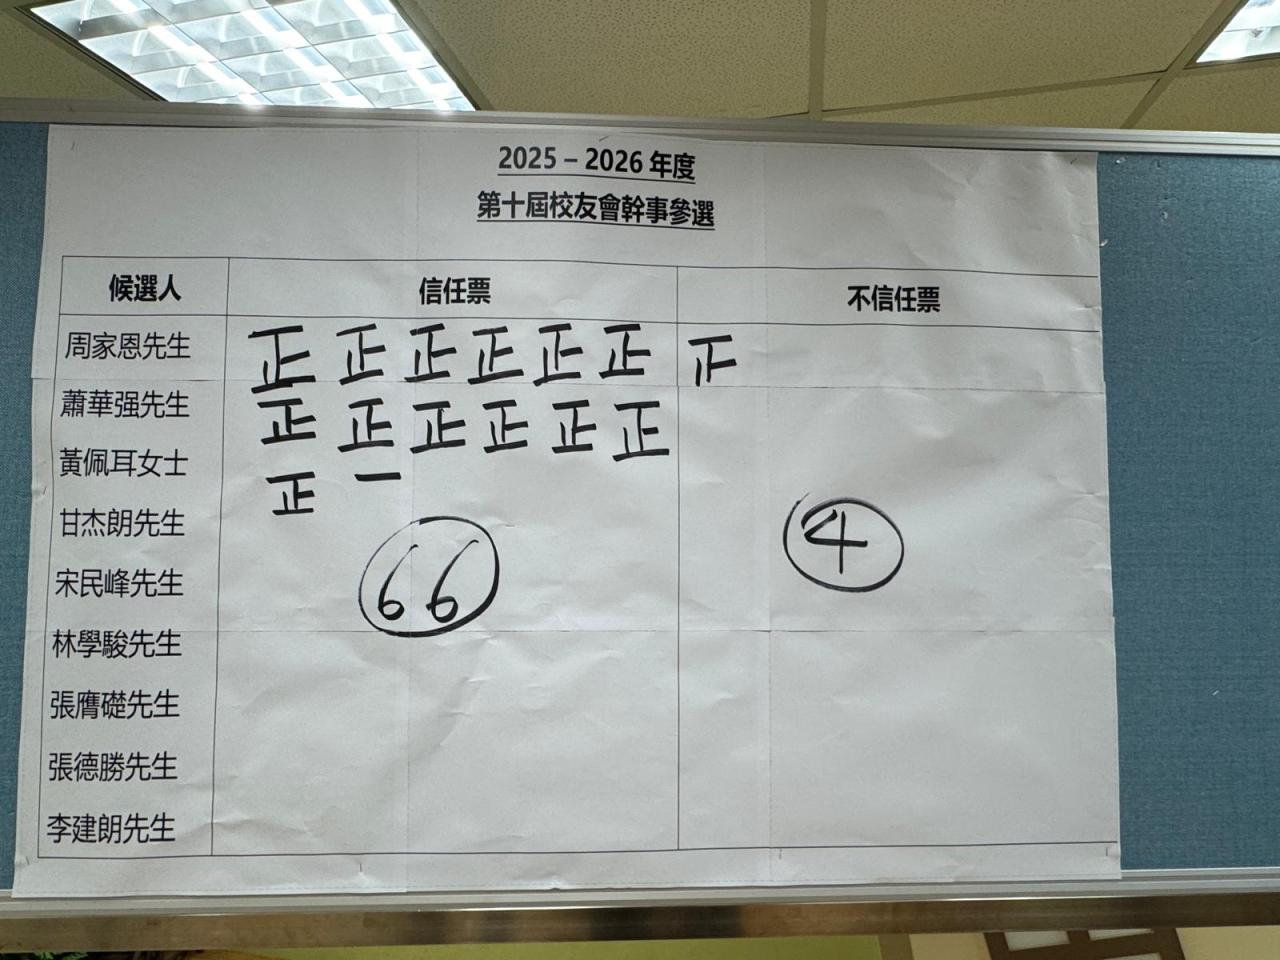 2025 – 2026 年度
第十屆校友會幹事參選
候選人 信任票 不信任票
周家恩先生 正 正 正 正 正 正
蕭華强先生 正 正 正 正 正 正
黃佩耳女士 正 一
甘杰朗先生
宋民峰先生
林學駿先生
張膺礎先生
張德勝先生
李建朗先生
66
4